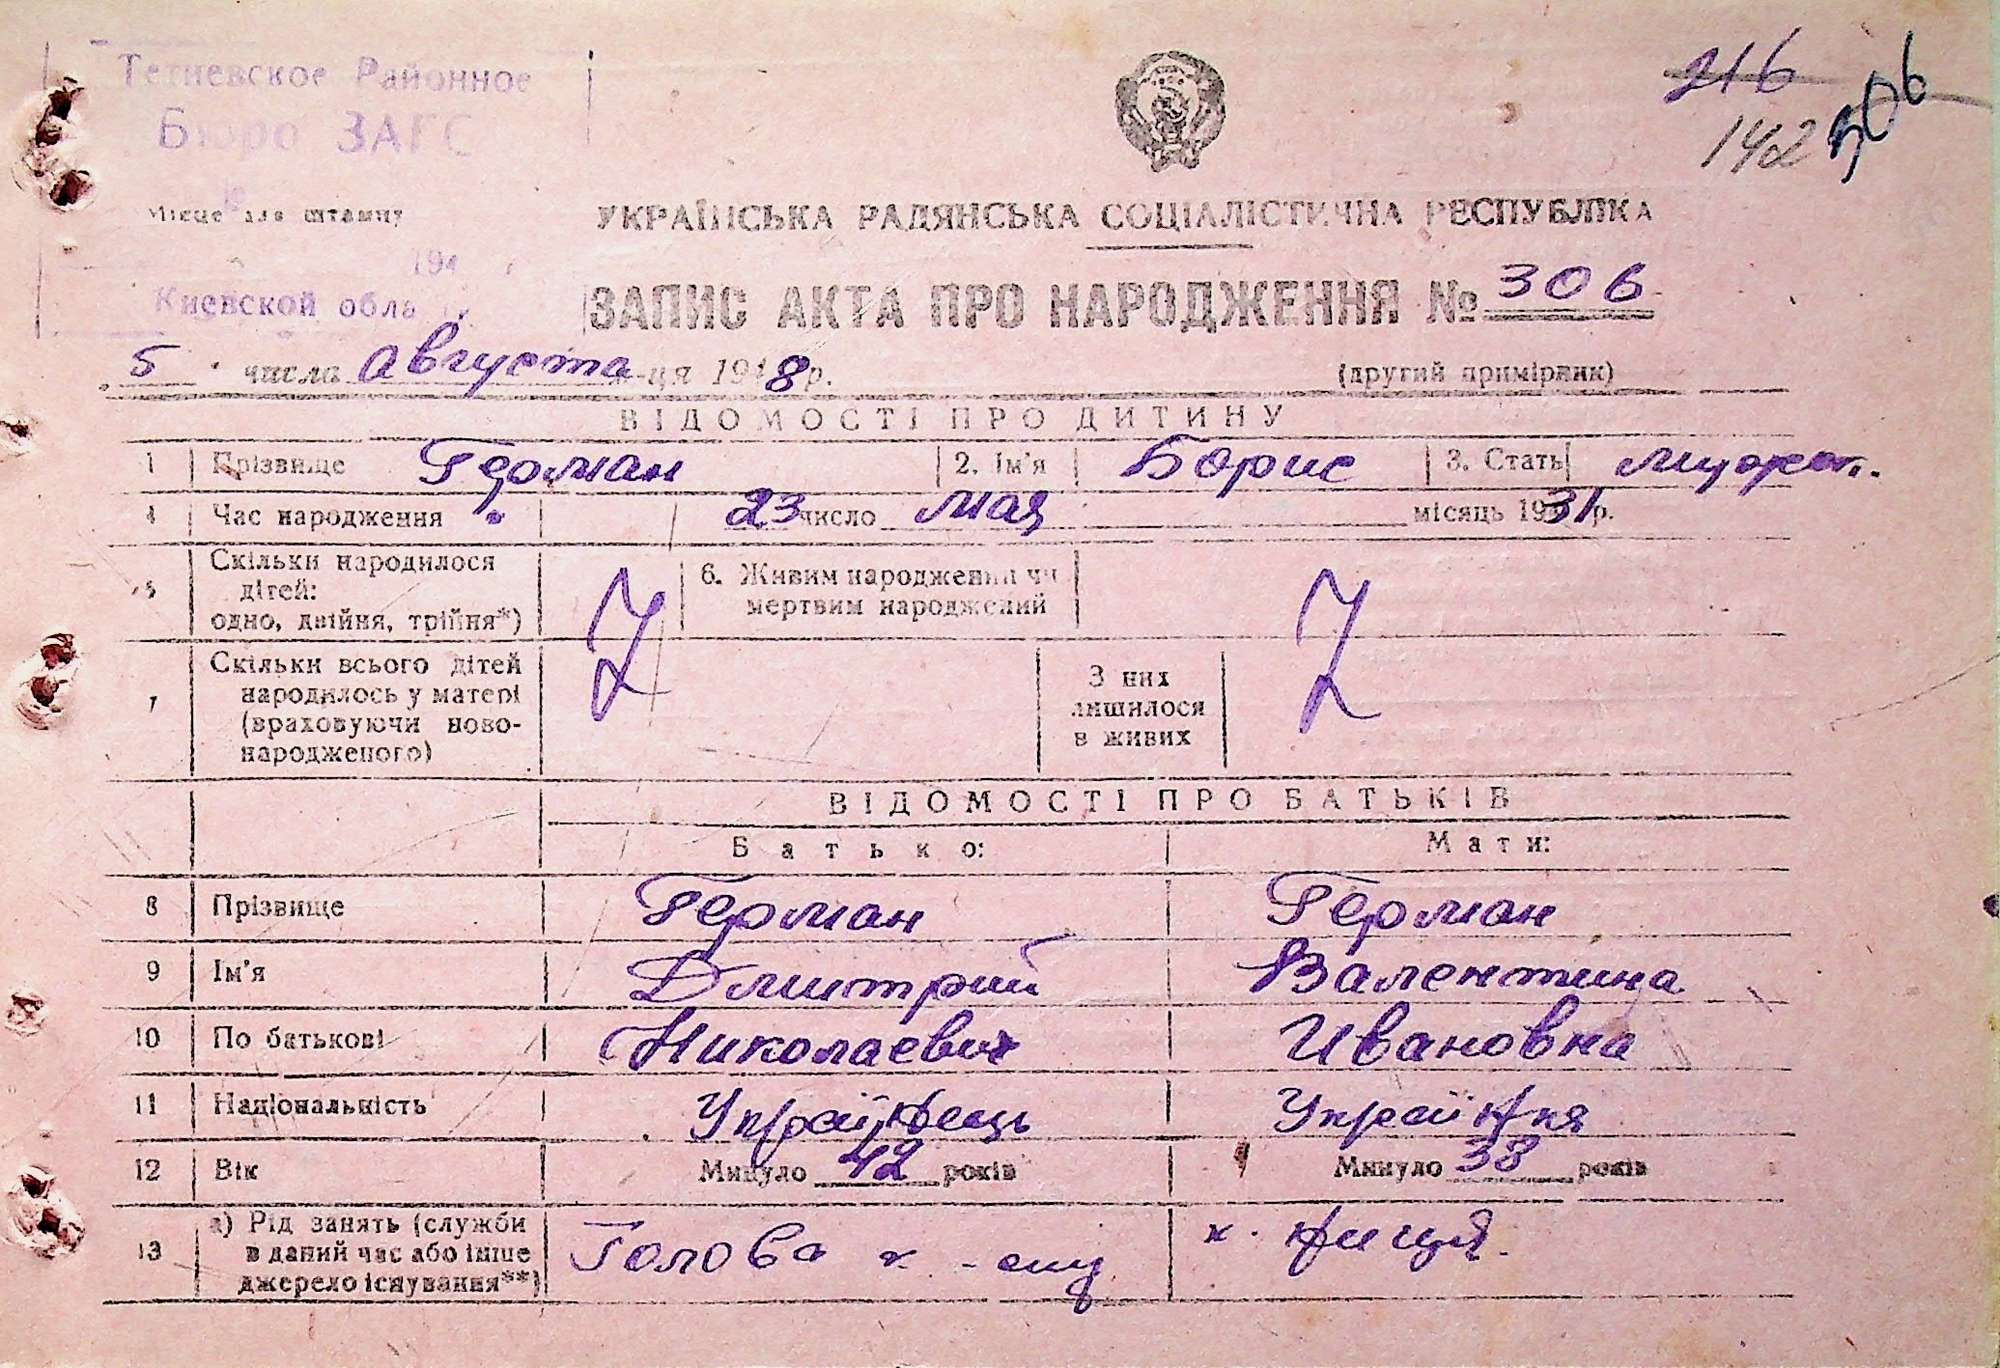 Тетиевское Районное
Бюро ЗАГС
Місце для штампу
194
Киевской обла
216
142 306
УКРАЇНСЬКА РАДЯНСЬКА СОЦІАЛІСТИЧНА РЕСПУБЛІКА
ЗАПИС АКТА ПРО НАРОДЖЕННЯ № 306
5 числа августа м-ця 1948 р. (другий примірник)
ВІДОМОСТІ ПРО ДИТИНУ
1 Прізвище Герман 2. Ім'я Борис 3. Стать мужск.
4 Час народження 23 число мая місяць 1931 р.
5 Скільки народилося дітей: одно, двійня, трійня*) 6. Живим народжений чи мертвим народжений
7 Скільки всього дітей народилось у матері (враховуючи новонародженого) З них лишилося в живих
ВІДОМОСТІ ПРО БАТЬКІВ
Батько: Мати:
8 Прізвище Герман Герман
9 Ім'я Дмитрий Валентина
10 По батькові Николаевич Ивановна
11 Національність Українець Українка
12 Вік Минуло 42 років Минуло 38 років
13 а) Рід занять (служби в даний час або інше джерело існування**) Голова к